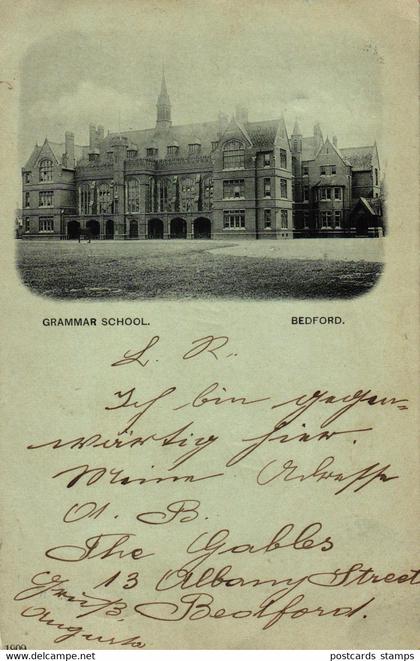 GRAMMAR SCHOOL. BEDFORD.
L. R.,
Ich bin gegen-
wärtig hier.
Meine Adresse
A. B.
The Gables
13 Albany Street
Bedford.
Gruß,
Augusta
1909
www.delcampe.net
postcards stamps